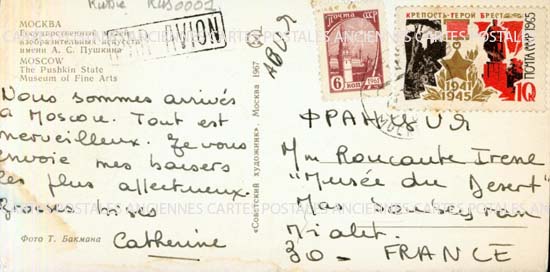 Rubie RUS0001
МОСКВА
Государственный музей
изобразительных искусств
имени А. С. Пушкина
MOSCOW
The Pushkin State
Museum of Fine Arts
PAR AVION
АВИЯ
Nous sommes arrivés
à Moscou. Tout est
merveilleux. Je vous
envoie mes baisers
les plus affectueux.
Grosses bises
Catherine
Фото Т. Бакмана
«Советский художник». Москва 1967
ПОЧТА СССР
6
КОП
КРЕПОСТЬ-ГЕРОЙ БРЕСТ
ПОЧТА СССР 1965
1941
1945
10К
ФРАНЦИЯ
Mm Roucaute Irene
"Musée du Desert"
Mas Soubeyran
Mialet.
30 - FRANCE
CARTES POSTALES ANCIENNES CARTES POSTALES ANCIENNES CARTES POSTALES